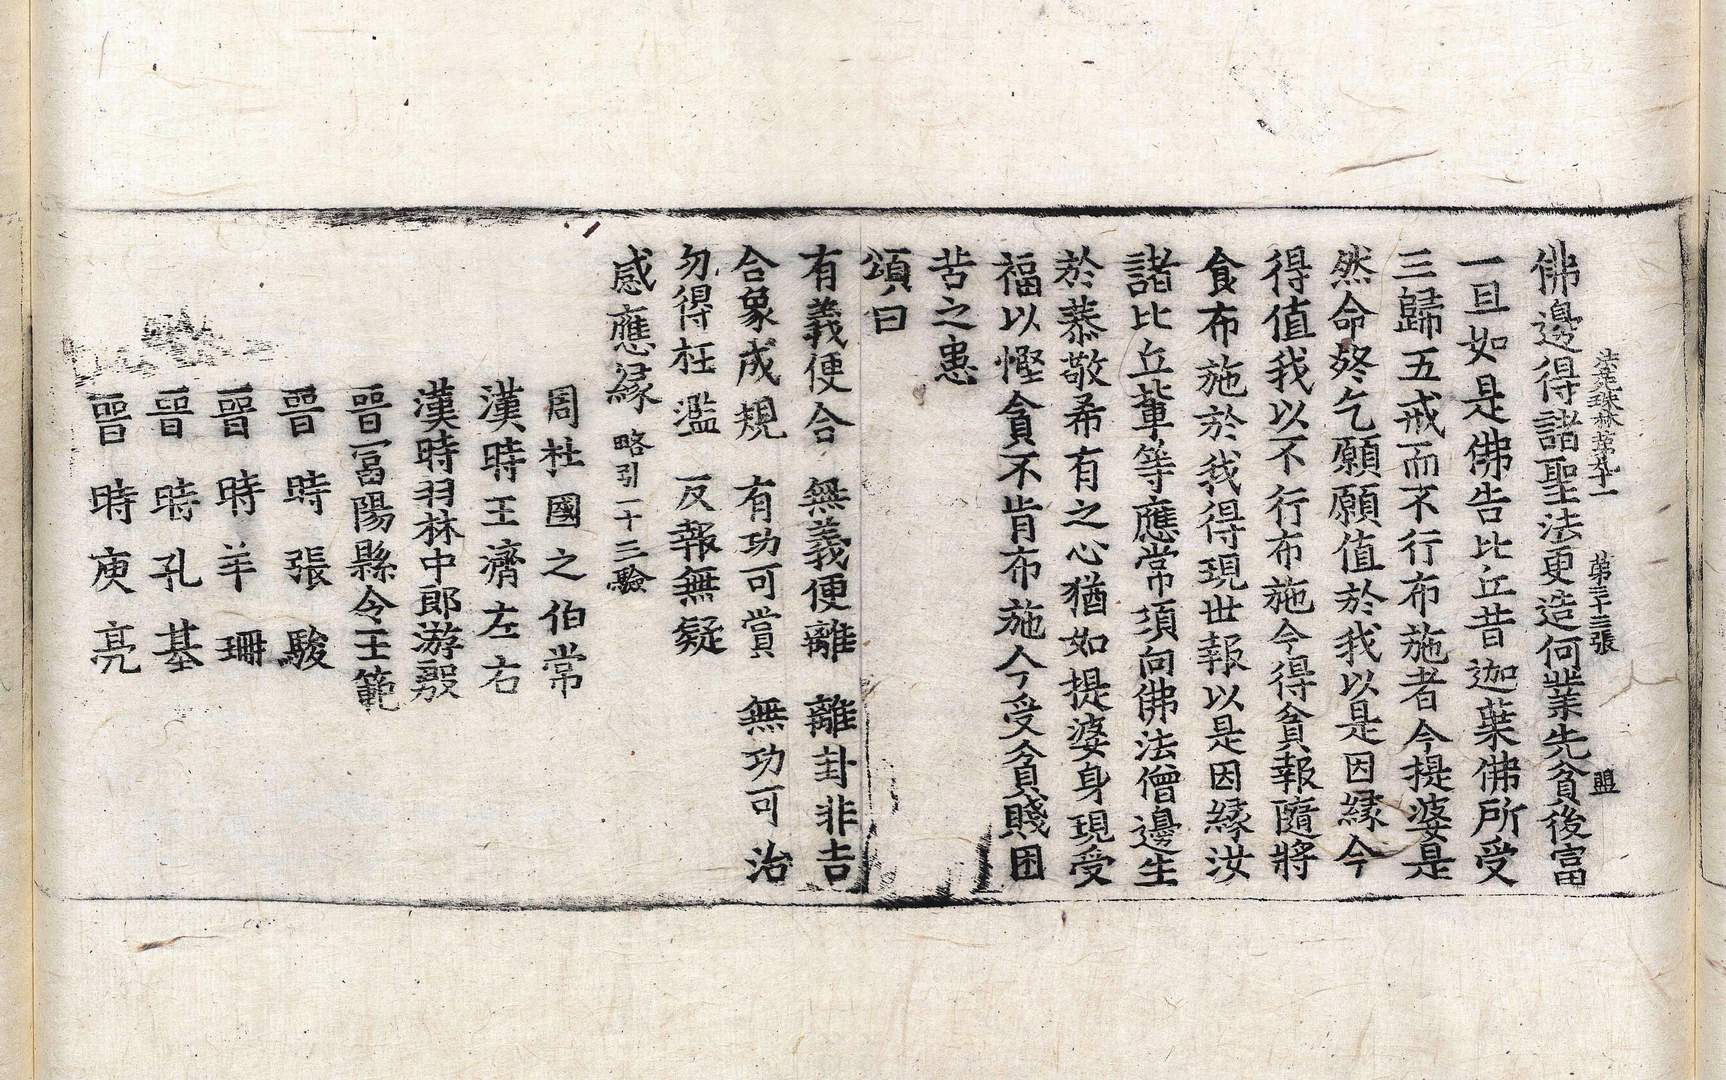 法苑珠林第九十一 第三十三張 盟
佛邊得諸聖法更造何業先貧後富
一旦如是佛告比丘昔迦葉佛所受
三歸五戒而不行布施者今提婆是
然命終乞願願值於我以是因緣今
得值我以不行布施今得貧報隨將
食布施於我得現世報以是因緣汝
諸比丘輩等應常須向佛法僧邊生
於恭敬希有之心猶如提婆身現受
福以慳貪不肯布施今受貧賤困
苦之患
頌曰
有義便合 無義便離 離卦非吉
合象成規 有功可賞 無功可治
勿得枉濫 反報無疑
感應緣 略引一十三驗
周杜國之伯常
漢時王濟左右
漢時羽林中郎游殷
晉富陽縣令王範
晉時張駿
晉時羊珊
晉時孔基
晉時庾亮